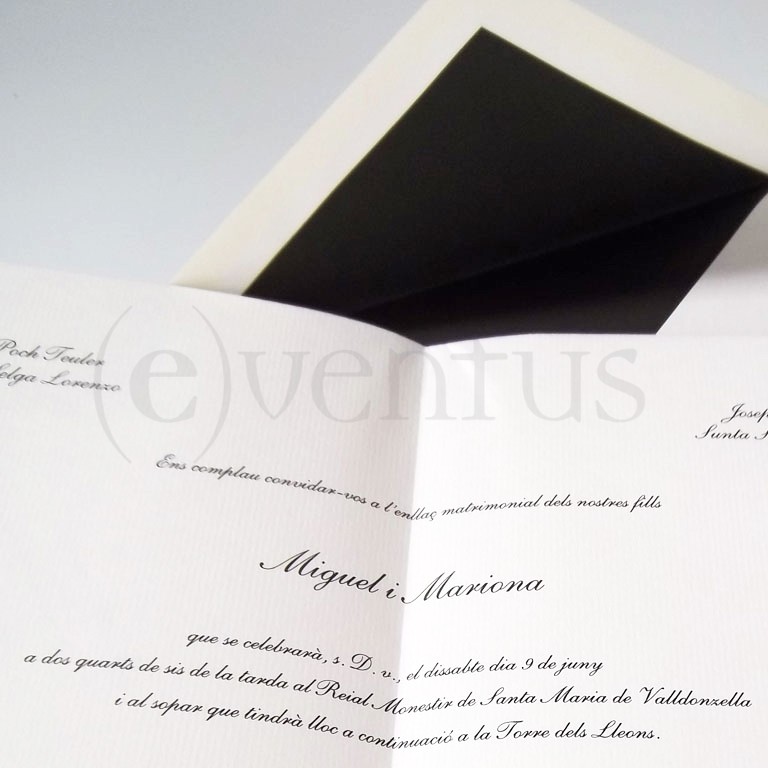 Poch Teuler
Lorenzo
(e)ventus
Ens complau convidar-vos a l'enllaç matrimonial dels nostres fills
Miguel i Mariona
que se celebrarà, s. D. v., el dissabte dia 9 de juny
a dos quarts de sis de la tarda al Reial Monestir de Santa Maria de Valldonzella
i al sopar que tindrà lloc a continuació a la Torre dels Lleons.